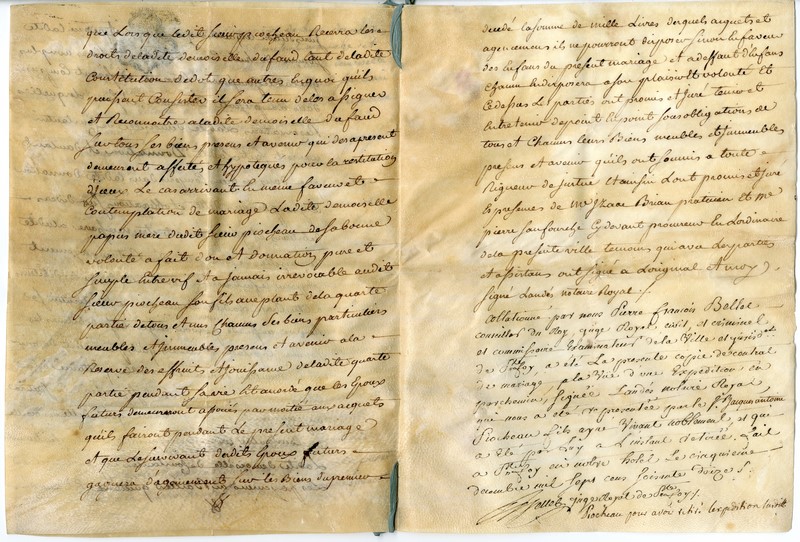 que Lorsque ledit sieur piocheau Recevra les
droits de ladite demoiselle dufaud tant de ladite
Constitution de dot que autres En quoi quils
puissent Consister il sera tenu de les assigner
et Reconnoitre a ladite demoiselle du faud
sur tous les biens presens et avenir qui des apresent
demeurent affectés et hypotéqués pour la restitution
d'iceux Le cas arrivant En meme faveur et
Contemplation de mariage Ladite demoiselle
papus mere dudit sieur piocheau de sa bonne
volonté a fait don et Donnation pure et
simple Entrevif et a Jamais irrevocable audit
sieur piocheau son fils acceptant de la quarte
partie de tous et uns Chacuns ses biens particuliers
meubles et immeubles presens et avenir a la
Reserve des effruits et Jouissance de ladite quarte
partie pendant sa vie Et a noté que les Epoux
futurs demeureront associés par moitié aux acquets
quils fairont pendant Le present mariage
et que Le survivant desdits Epoux futurs
gagnera d'agencement sur les Biens du premier
decedé la somme de mille Livres desquels acquets et
agencemens ils ne pourront disposer sinon En faveur
des Enfans du present mariage et a deffaut d'Enfans
Chacun En disposera a son plaisir Et volonté Et
Ce dessus Les parties ont promis et Juré tenir et
Entretenir de point En point sous obligations de
tous et Chacuns leurs Biens meubles et immeubles
presens et avenir quils ont soumis a toute
Rigueur de justice Et ainsin L'ont promis et juré
Es presences de Mr Isaac Brian praticien et Me
pierre Jaufourche Cy devant procureur En Lordinaire
de la presente ville temoins qui avec Les parties
et assistans ont signé a Loriginal et moy
signé Landés notaire Royal
Collationné par nous Pierre François Bellet
conseiller du Roy, juge Royal, civil, et criminel
et commissaire Examinateur de la Ville et jurisdon
de Ste foy a eté La presente copie de contrat
de mariage, a la Vue d'une Expedition En
parchemin, signée Landés notaire Royal,
qui nous a eté representée par le Sr Jacques antoine
Piocheau fils ayné Vivant noblement, et qui
a eté par Luy a L'instant Retirée. Fait
a Ste foy en notre hotel Le cinquieme
decembre mil sept cens soixante
Bellet juge Royal de Ste foy
Piocheau pour avoir retiré lexpedition